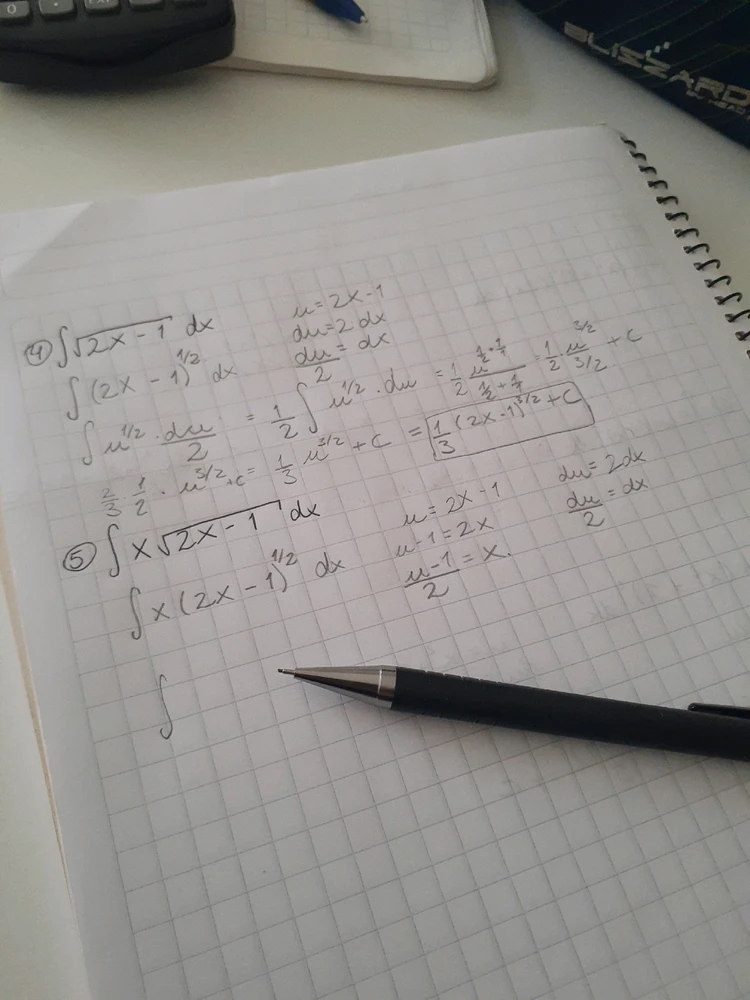 BLIZZARD
④ ∫√(2x - 1) dx
u = 2x - 1
∫(2x - 1)^1/2 dx
du = 2 dx
du/2 = dx
∫ u^1/2 · du/2 = 1/2 ∫ u^1/2 · du = 1/2 u^(1/2 + 1/1)/(1/2 + 1/1) = 1/2 · u^3/2/3/2 + C
2/3 · 1/2 · u^3/2 + C = 1/3 u^3/2 + C = 1/3 (2x - 1)^3/2 + C
⑤ ∫ x√(2x - 1) dx
u = 2x - 1
du = 2dx
∫ x (2x - 1)^1/2 dx
u - 1 = 2x
du/2 = dx
u - 1/2 = x.
∫